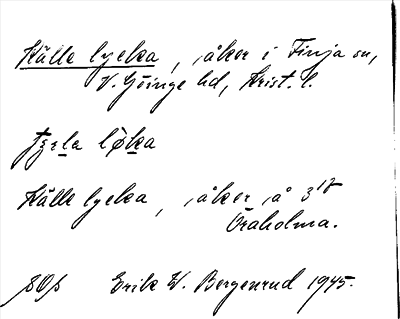 Källe lycka, åker i Finja sn,
V. Göinge hd, Krist. l.
løka
Källe lycka, åker å 3 1/8
Oraholma.
Erik W. Bergenrud 1945.